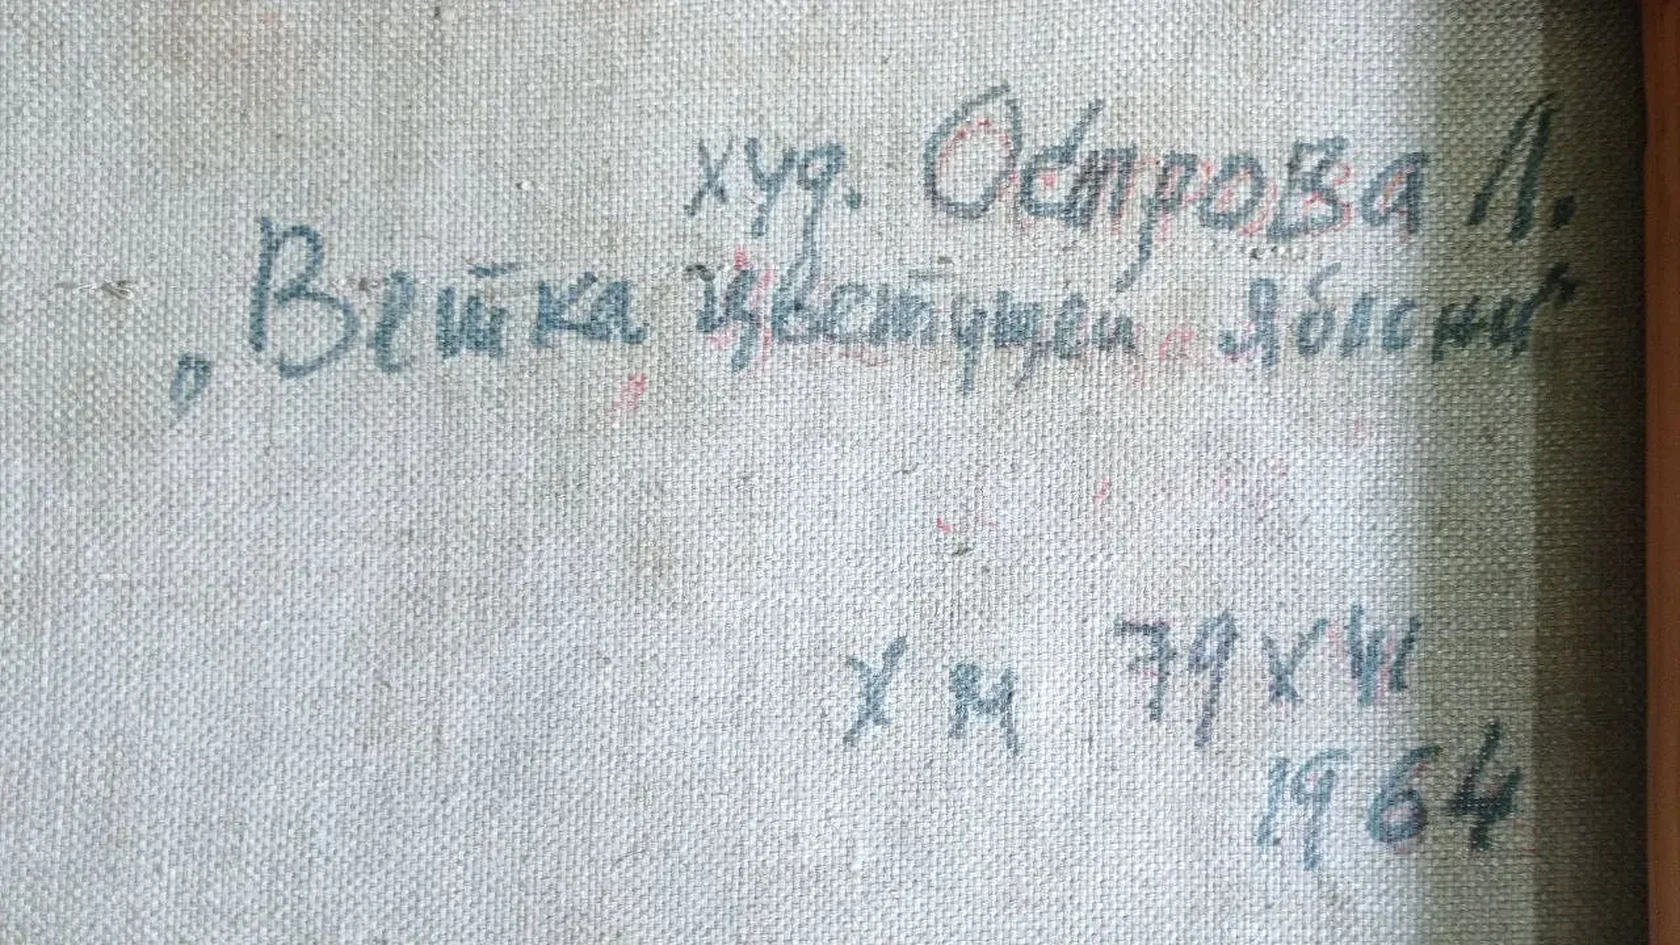 худ. Острова Л.
„Ветка цветущей яблони"
х м 79 х
1964